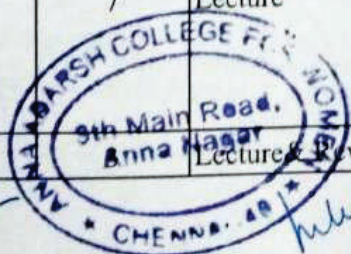 Lecture
ANNA ADARSH COLLEGE FOR WOMEN
9th Main Road,
Anna Nagar
Lecture & Rev
* CHENNAI. 40 *